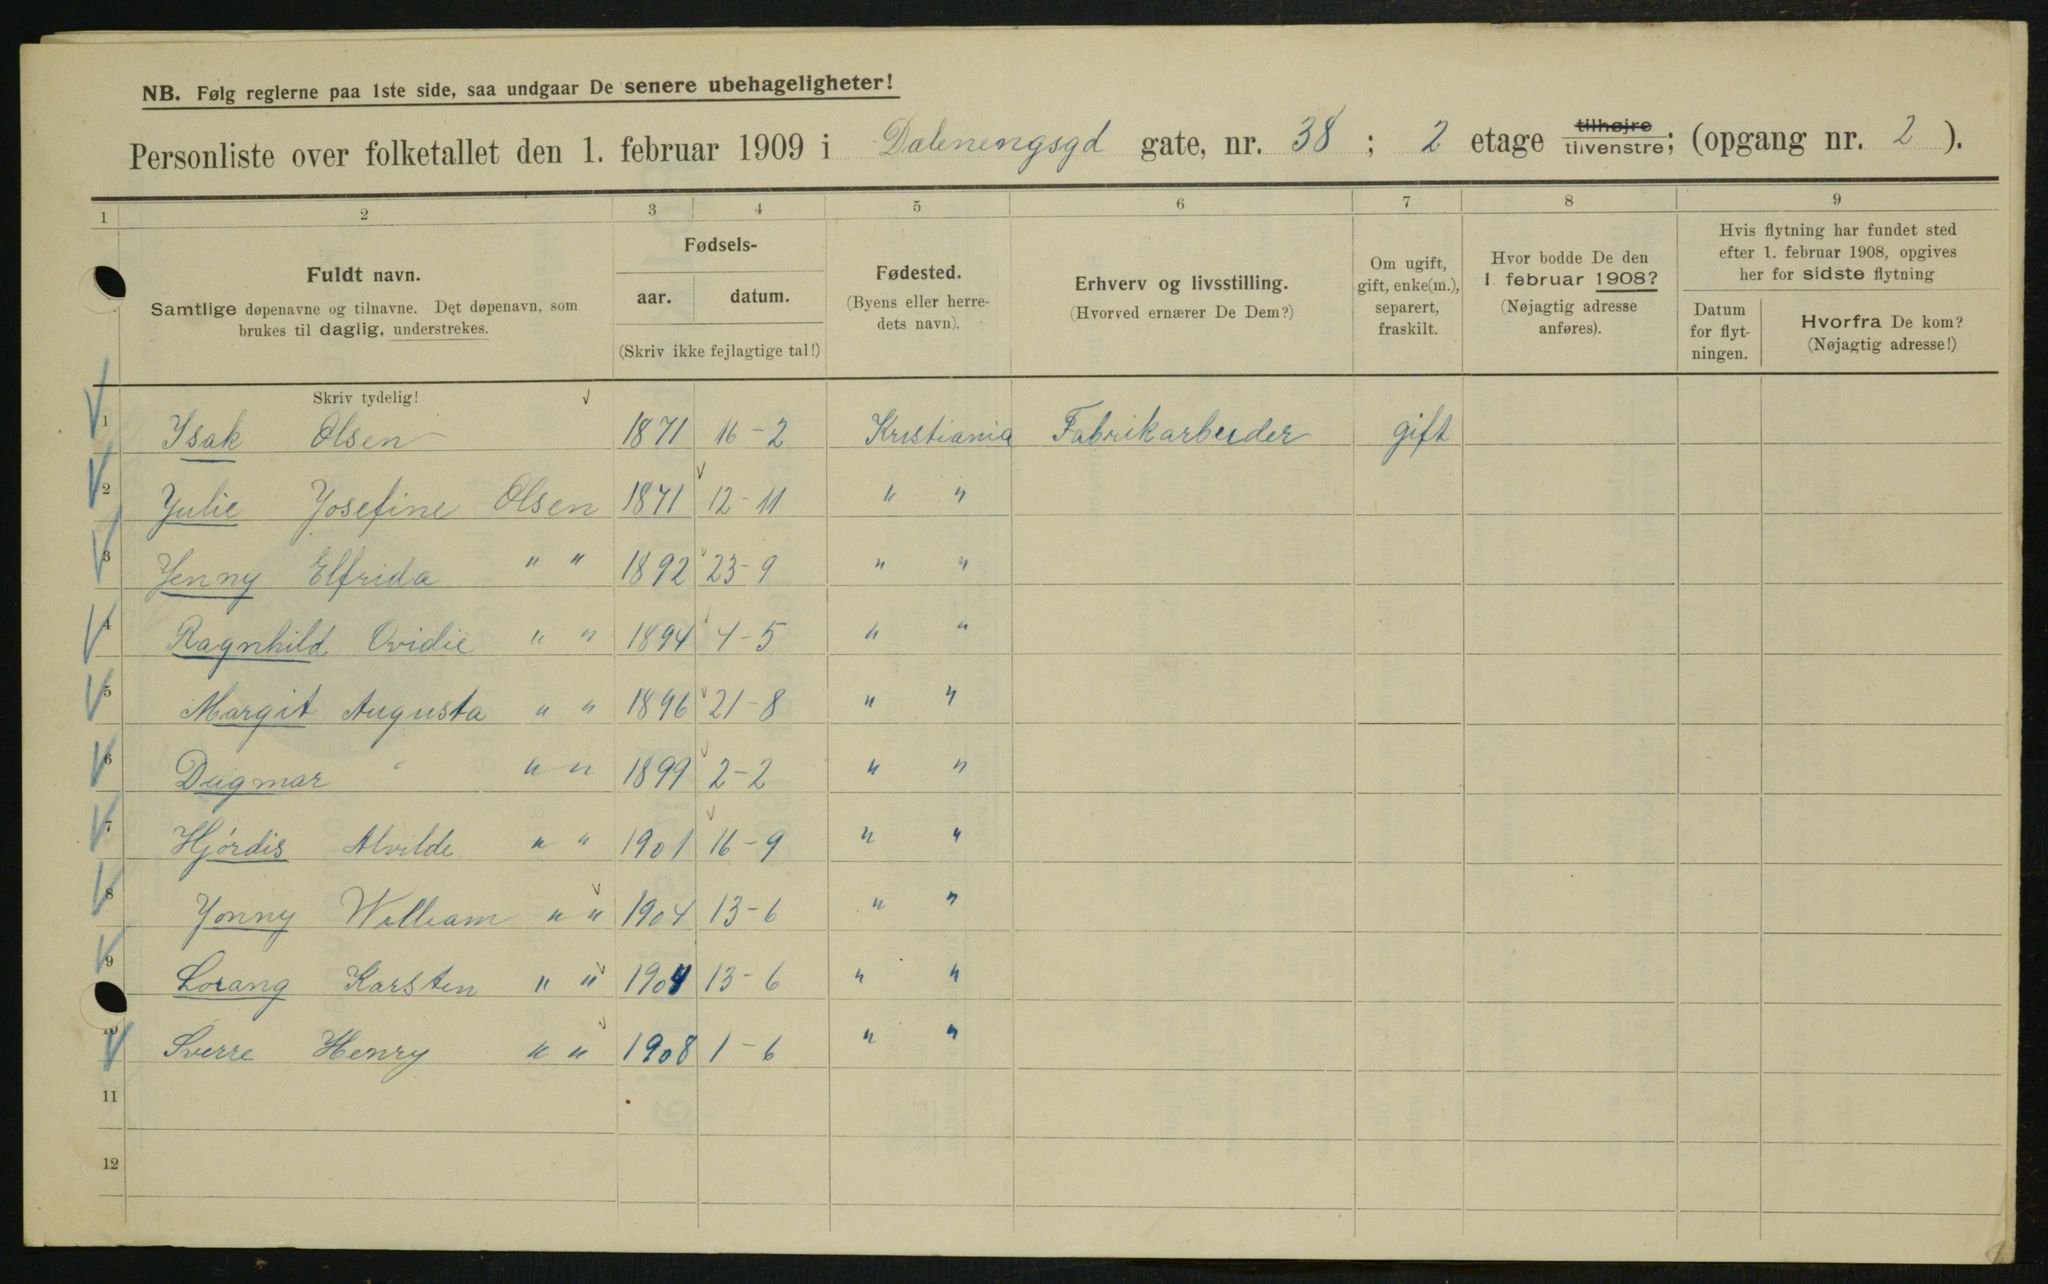 NB. Følg reglerne paa 1ste side, saa undgaar De senere ubehageligheter!
Personliste over folketallet den 1. februar 1909 i Dalenengsgd gate, nr. 38 ; 2 etage tilhøjre tilvenstre; (opgang nr. 2 ).
1 2 3 4 5 6 7 8 9
Fuldt navn.
Samtlige døpenavne og tilnavne. Det døpenavn, som
brukes til daglig, understrekes.
Fødsels-
aar. datum.
(Skriv ikke fejlagtige tal!)
Fødested.
(Byens eller herre-
dets navn).
Erhverv og livsstilling.
(Hvorved ernærer De Dem?)
Om ugift,
gift, enke(m.),
separert,
fraskilt.
Hvor bodde De den
1. februar 1908?
(Nøjagtig adresse
anføres).
Hvis flytning har fundet sted
efter 1. februar 1908, opgives
her for sidste flytning
Datum
for flyt-
ningen.
Hvorfra De kom?
(Nøjagtig adresse!)
Skriv tydelig!
1 Isak Olsen 1871 16-2 Kristiania Fabrikarbeider gift
2 Julie Josefine Olsen 1871 12-11 " "
3 Jenny Elfrida " " 1892 23-9 " "
4 Ragnhild Ovidie " " 1894 4-5 " "
5 Margit Augusta " " 1896 21-8 " "
6 Dagmar " " " 1899 2-2 " "
7 Hjórdis Alvilde " " 1901 16-9 " "
8 Jonny William " " 1904 13-6 " "
9 Lorang Karsten " " 1904 13-6 " "
10 Sverre Henry " " 1908 1-6 " "
11
12